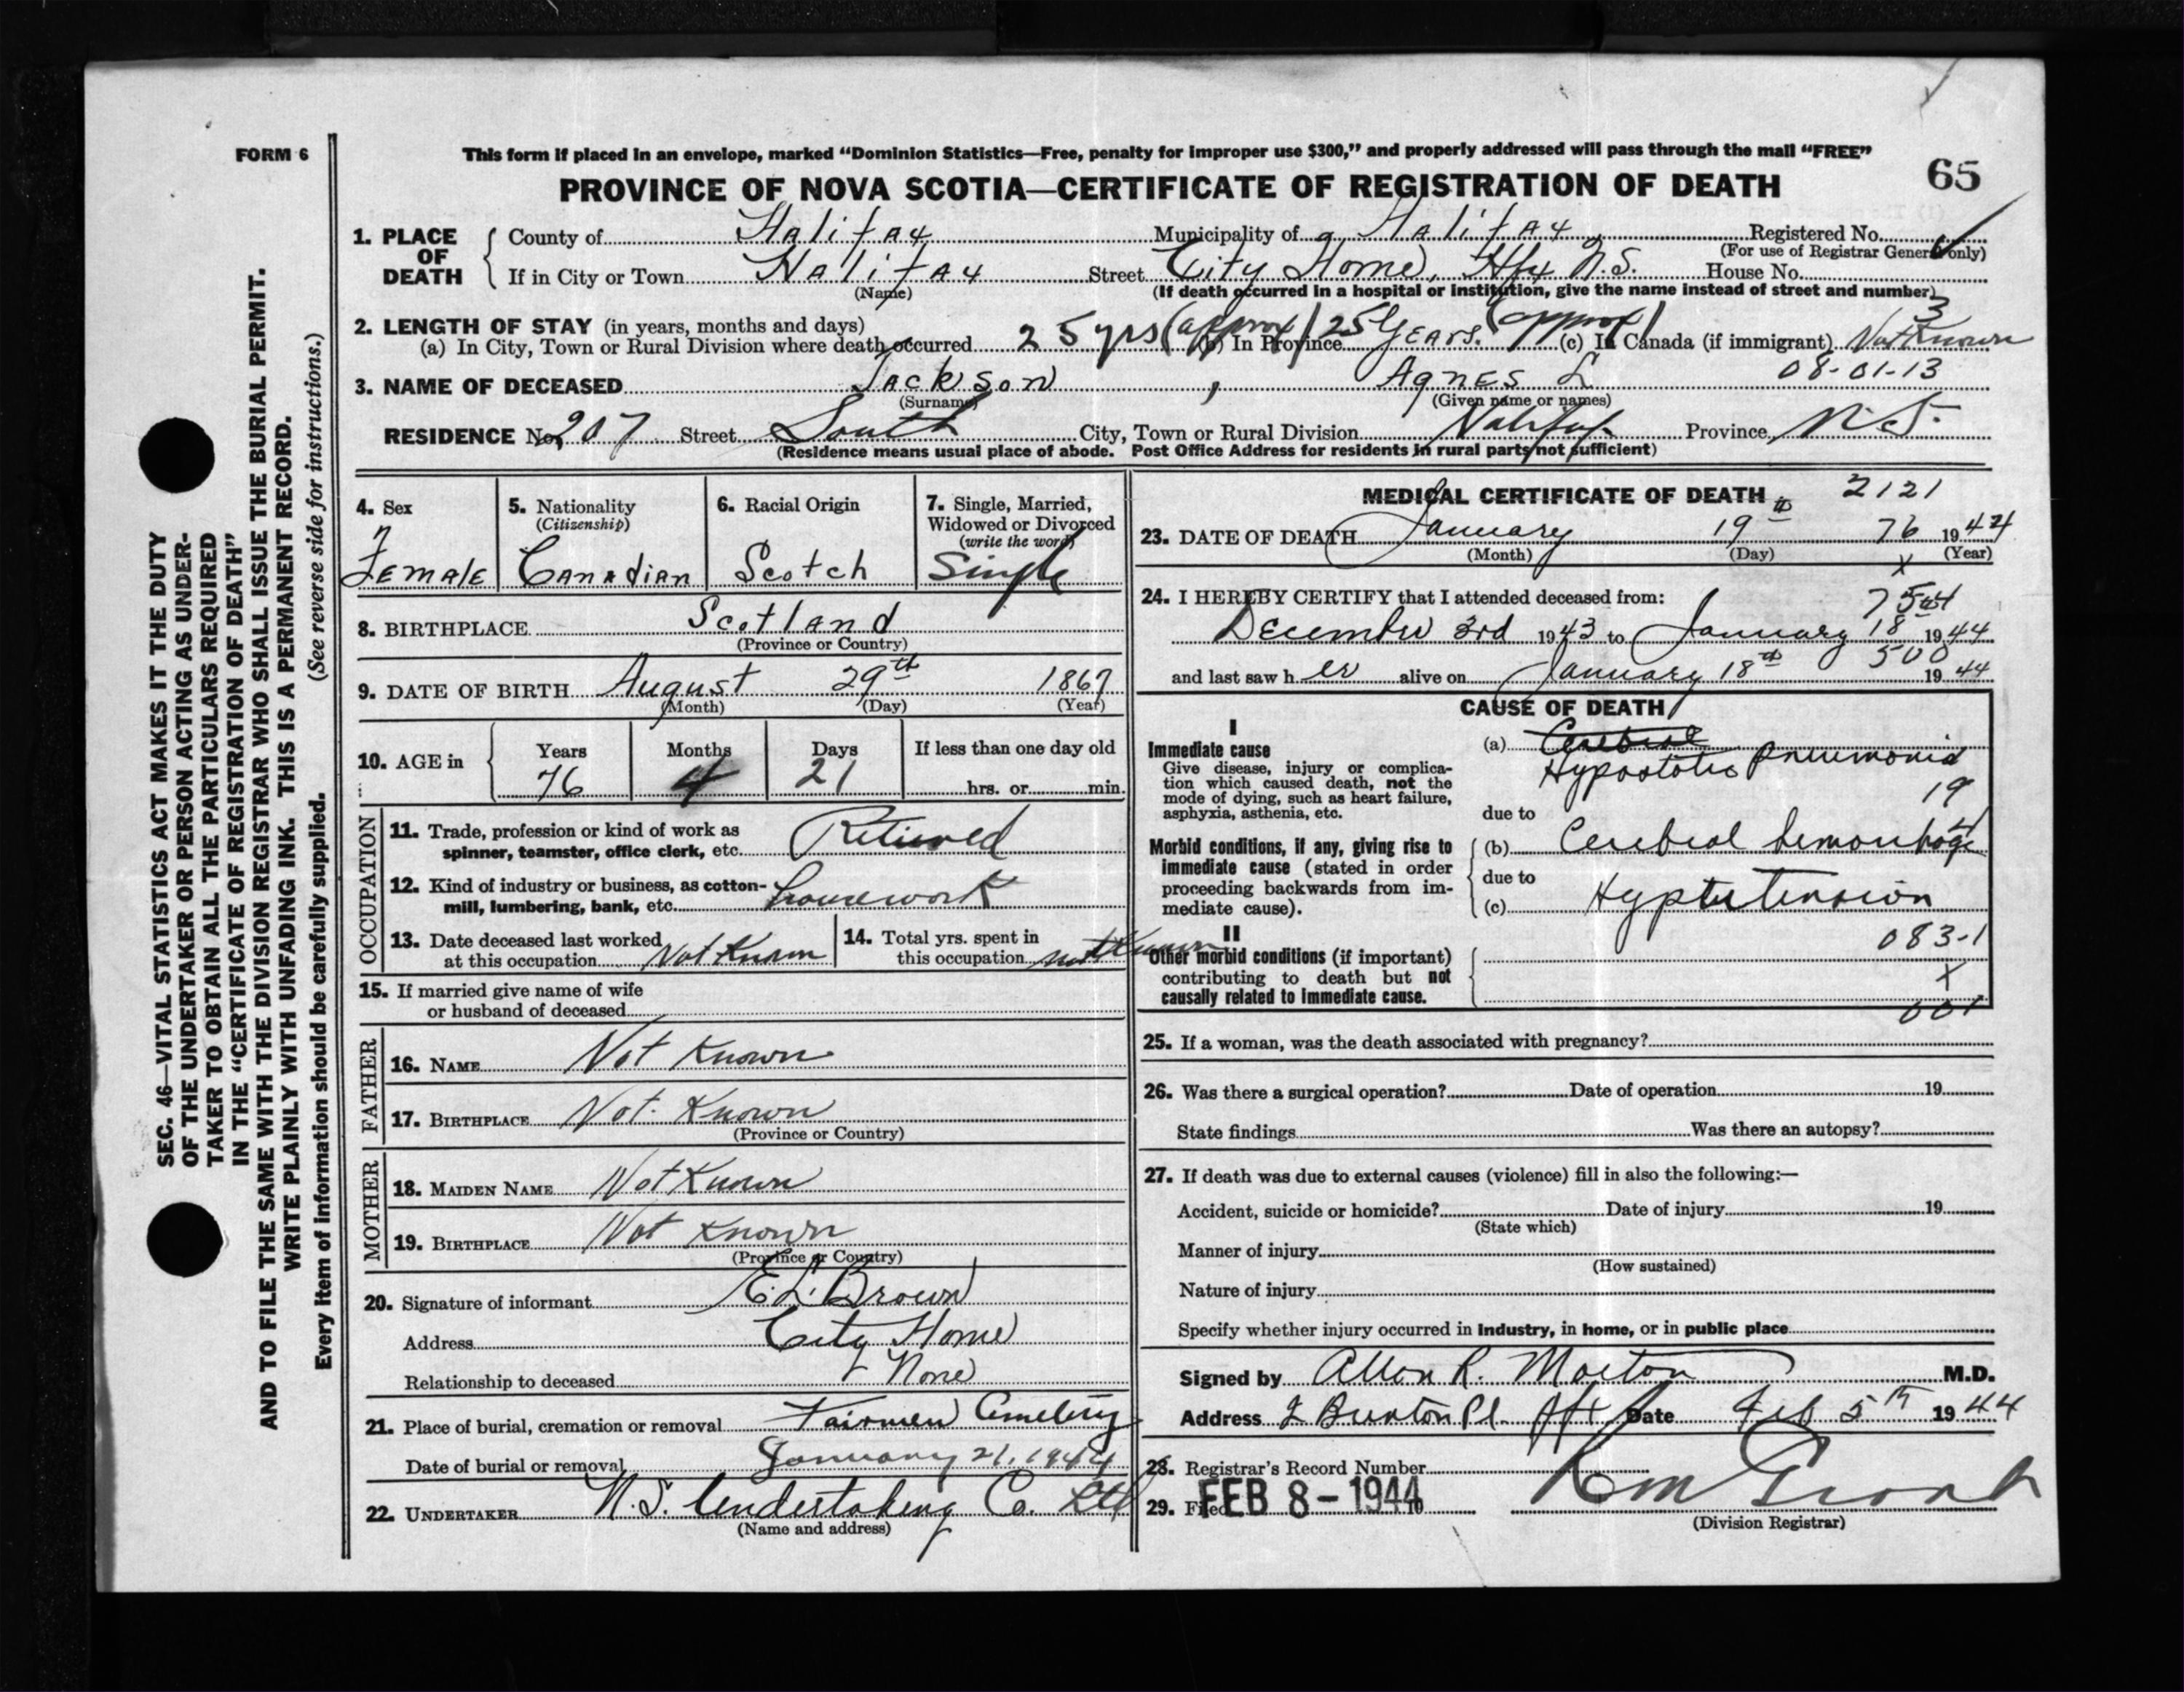 FORM 6
This form if placed in an envelope, marked “Dominion Statistics—Free, penalty for improper use $300,” and properly addressed will pass through the mail “FREE”
PROVINCE OF NOVA SCOTIA—CERTIFICATE OF REGISTRATION OF DEATH
65
1. PLACE OF DEATH
County of Halifax Municipality of Halifax Registered No.
(For use of Registrar General only)
If in City or Town Halifax Street City Home, Hfx N.S. House No.
(Name) (If death occurred in a hospital or institution, give the name instead of street and number)
3
2. LENGTH OF STAY (in years, months and days)
(a) In City, Town or Rural Division where death occurred 25 yrs (approx) (b) In Province 25 Years. (approx) (c) In Canada (if immigrant) Not Known
3. NAME OF DECEASED Jackson, Agnes L 08-01-13
(Surname) (Given name or names)
RESIDENCE No. 207 Street South City, Town or Rural Division Halifax Province N.S.
(Residence means usual place of abode. Post Office Address for residents in rural parts not sufficient)
4. Sex
Female
5. Nationality
(Citizenship)
Canadian
6. Racial Origin
Scotch
7. Single, Married,
Widowed or Divorced
(write the word)
Single
8. BIRTHPLACE Scotland
(Province or Country)
9. DATE OF BIRTH August 29th 1867
(Month) (Day) (Year)
10. AGE in
Years Months Days If less than one day old
76 4 21 hrs. or min.
OCCUPATION
11. Trade, profession or kind of work as
spinner, teamster, office clerk, etc. Retired
12. Kind of industry or business, as cotton-
mill, lumbering, bank, etc. housework
13. Date deceased last worked
at this occupation Not Known
14. Total yrs. spent in
this occupation not Known
15. If married give name of wife
or husband of deceased
FATHER
16. NAME Not Known
17. BIRTHPLACE Not Known
(Province or Country)
MOTHER
18. MAIDEN NAME Not Known
19. BIRTHPLACE Not Known
(Province or Country)
20. Signature of informant E.L. Brown
Address City Home
Relationship to deceased None
21. Place of burial, cremation or removal Cemetery
Date of burial or removal January 21, 1944
22. UNDERTAKER N.S. Undertaking Co. Ltd
(Name and address)
MEDICAL CERTIFICATE OF DEATH 2121
23. DATE OF DEATH January 19th 76 1944
(Month) (Day) (Year)
x
24. I HEREBY CERTIFY that I attended deceased from:
December 3rd 1943 to January 18 1944
500
and last saw her alive on January 18th 1944
CAUSE OF DEATH
I
Immediate cause
Give disease, injury or complica-
tion which caused death, not the
mode of dying, such as heart failure,
asphyxia, asthenia, etc.
(a) Cerebral
Hypostatic Pneumonia
19
due to
Morbid conditions, if any, giving rise to
immediate cause (stated in order
proceeding backwards from im-
mediate cause).
(b) Cerebral hemorrhage
due to
(c) Hypertension
083-1
II
Other morbid conditions (if important)
contributing to death but not
causally related to immediate cause.
X
001
25. If a woman, was the death associated with pregnancy?
26. Was there a surgical operation? Date of operation 19
State findings Was there an autopsy?
27. If death was due to external causes (violence) fill in also the following:—
Accident, suicide or homicide? Date of injury 19
(State which)
Manner of injury
(How sustained)
Nature of injury
Specify whether injury occurred in industry, in home, or in public place
Signed by Allan R. Morton M.D.
Address Pl. Hfx Date Feb 5th 1944
28. Registrar's Record Number
29. Filed FEB 8 - 1944 19
(Division Registrar)
SEC. 46—VITAL STATISTICS ACT MAKES IT THE DUTY
OF THE UNDERTAKER OR PERSON ACTING AS UNDER-
TAKER TO OBTAIN ALL THE PARTICULARS REQUIRED
IN THE “CERTIFICATE OF REGISTRATION OF DEATH”
AND TO FILE THE SAME WITH THE DIVISION REGISTRAR WHO SHALL ISSUE THE BURIAL PERMIT.
WRITE PLAINLY WITH UNFADING INK. THIS IS A PERMANENT RECORD.
Every item of information should be carefully supplied. (See reverse side for instructions.)